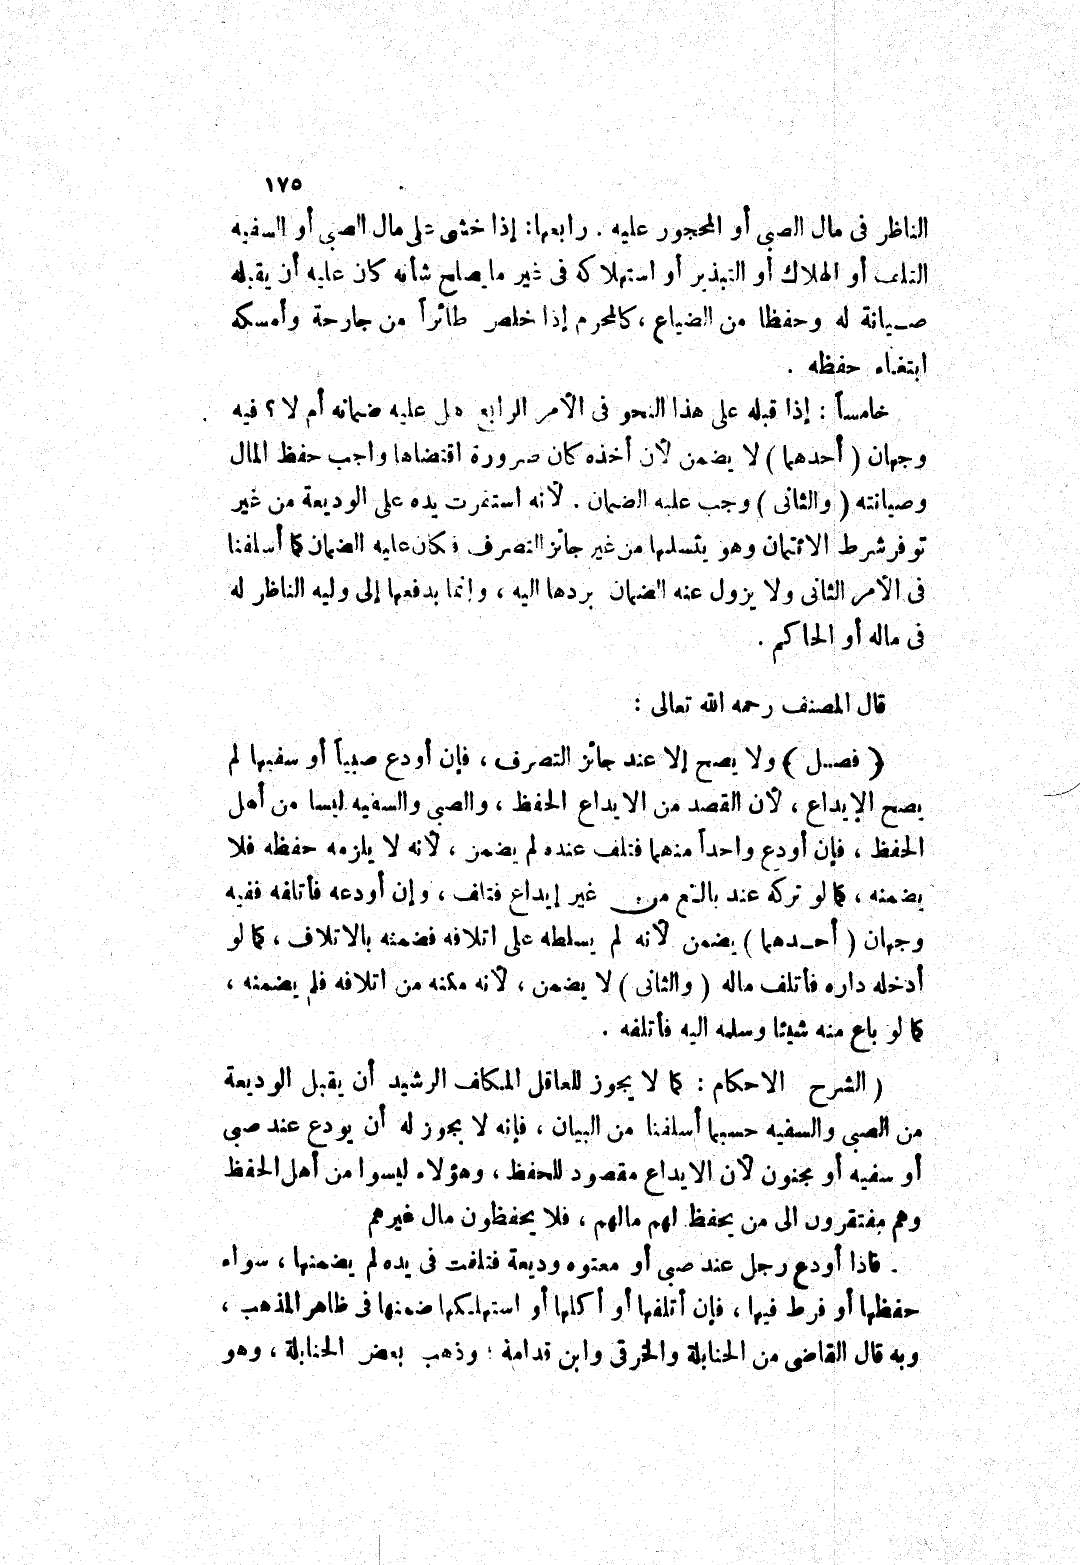 ١٧٥
الناظر فى مال الصبى أو المحجور عليه . رابعها: إذا خشى على مال الصبى أو السفيه
التلف أو الهلاك أو التبذير أو استهلاكه فى غير ما يصلح شأنه كان عليه أن يقبله
صــيانة له وحفظا من الضياع ، كالمحرم إذا خلص طائراً من جارحة وأمسكه
ابتغاء حفظه .
خامساً : إذا قبله على هذا النحو فى الأمر الرابع هل عليه ضمانه أم لا ؟ فيه
وجهان ( أحدهما ) لا يضمن لأن أخذه كان ضرورة اقتضاها واجب حفظ المال
وصيانته ( والثانى ) وجب عليه الضمان . لأنه استقرت يده على الوديعة من غير
توفر شرط الائتمان وهو يتسلمها من غير جائز التصرف فكان عليه الضمان كما أسلفنا
فى الأمر الثانى ولا يزول عنه الضمان بردها اليه ، وإنما بدفعها إلى وليه الناظر له
فى ماله أو الحاكم .
قال المصنف رحمه الله تعالى :
( فصــل ) ولا يصح إلا عند جائز التصرف ، فإن أودع صبياً أو سفيها لم
يصح الإيداع ، لأن القصد من الايداع الحفظ ، والصبى والسفيه ليسا من أهل
الحفظ ، فإن أودع واحداً منهما فتلف عنده لم يضمن ، لأنه لا يلزمه حفظه فلا
يضمنه ، كما لو تركه عند بالغ من غير إيداع فتلف ، وإن أودعه فأتلفه ففيه
وجهان ( أحــدهما ) يضمن لأنه لم يسلطه على اتلافه فضمنه بالاتلاف ، كما لو
أدخله داره فأتلف ماله ( والثانى ) لا يضمن ، لأنه مكنه من اتلافه فلم يضمنه ،
كما لو باع منه شيئا وسلمه اليه فأتلفه .
( الشرح الاحكام : كما لا يجوز للعاقل المكلف الرشيد أن يقبل الوديعة
من الصبى والسفيه حسبما أسلفنا من البيان ، فإنه لا يجوز له أن يودع عند صبى
أو سفيه أو مجنون لأن الايداع مقصود للحفظ ، وهؤلاء ليسوا من أهل الحفظ
وهم مفتقرون الى من يحفظ لهم مالهم ، فلا يحفظون مال غيرهم
. فاذا أودع رجل عند صبى أو معتوه وديعة فتلفت فى يده لم يضمنها ، سواء
حفظها أو فرط فيها ، فإن أتلفها أو أكلها أو استهلكها ضمنها فى ظاهر المذهب ،
وبه قال القاضى من الحنابلة والخرقى وابن قدامة ؛ وذهب بعض الحنابلة ، وهو